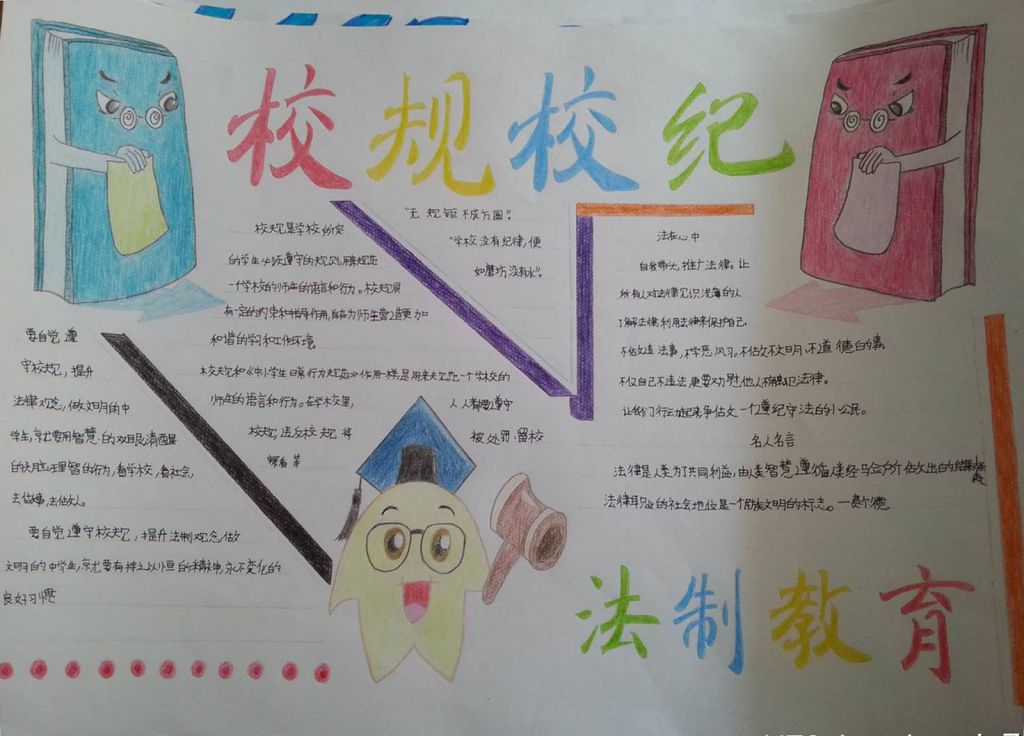 校规校纪
"无规矩不成方圆"。
"学校没有纪律,便
如磨坊没有水"。
校规是学校制定
的学生必须遵守的规则,用来规范
一个学校的师生的语言和行为。校规具
有一定的约束和指导作用,旨在为师生营造更加
和谐的学习和工作环境
校规和《中小学生日常行为规范》作用一样是用来规范一个学校的
师生的语言和行为。在学校里,
人人都要遵守
校规,违反校规将
被处罚、留校
察看等
要自觉遵
守校规,提升
法律观念,做文明的中
学生,就要用智慧的双眼,清醒
的头脑,理智的行为,看学校,看社会,
去做事,去做人。
要自觉遵守校规,提升法制观念,做
文明的中学生,就要有持之以恒的精神,永不变化的
良好习惯
法在心中
自我带头,推广法律。让
所有人对法律见识浅薄的人
了解法律,利用法律来保护自己.
不做违法事,不学恶风习。不做不文明、不道德的事
不仅自己不违法,更要劝慰他人不触犯法律。
让我们行动起来争做一个遵纪守法的小公民。
名人名言
法律是人类为了共同利益,由人类智慧遵循人类经验所做出的结果
法律职业的社会地位是一个民族文明的标志。—费尔德
法制教育